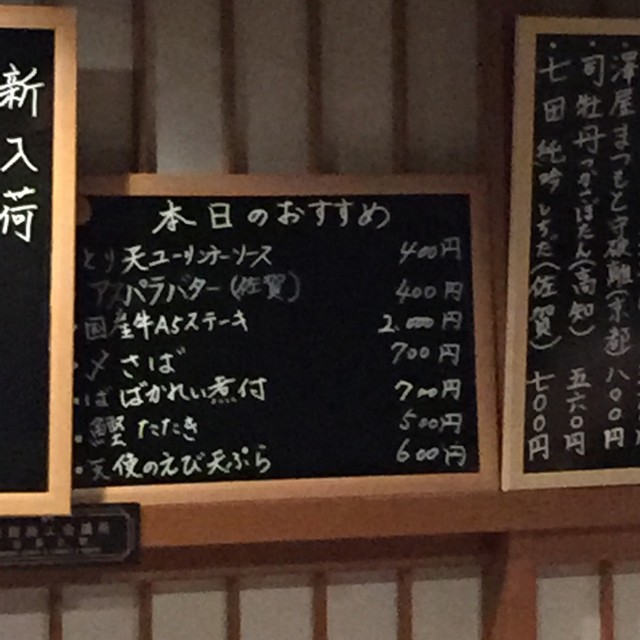 新入荷
本日のおすすめ
とり天ユーリンチーソース 400円
アスパラバター(佐賀) 400円
・国産牛A5ステーキ 2.000円
・〆さば 700円
・ばばかれい煮付 700円
・鰹たたき 500円
・天使のえび天ぷら 600円
澤屋まつもと守破離(京都)八〇〇円
・司牡丹 (高知) 五六〇円
・七田純吟しちだ(佐賀) 七〇〇円